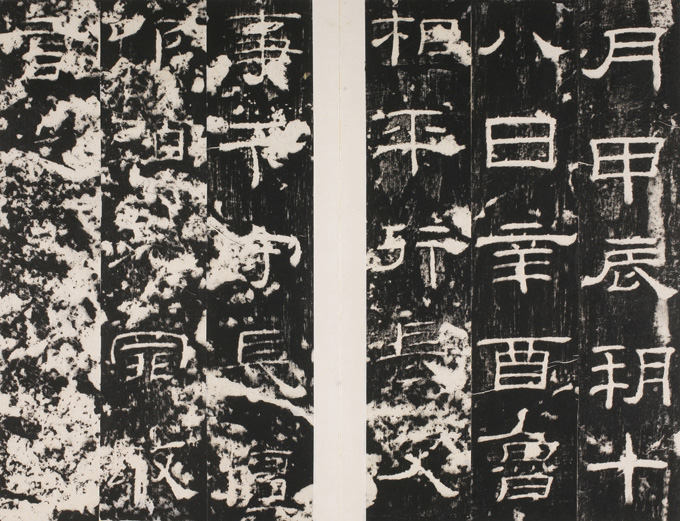 月甲辰朔十
八日辛酉魯
相平行長史
事卞守長擅
叩頭死罪敢
言之